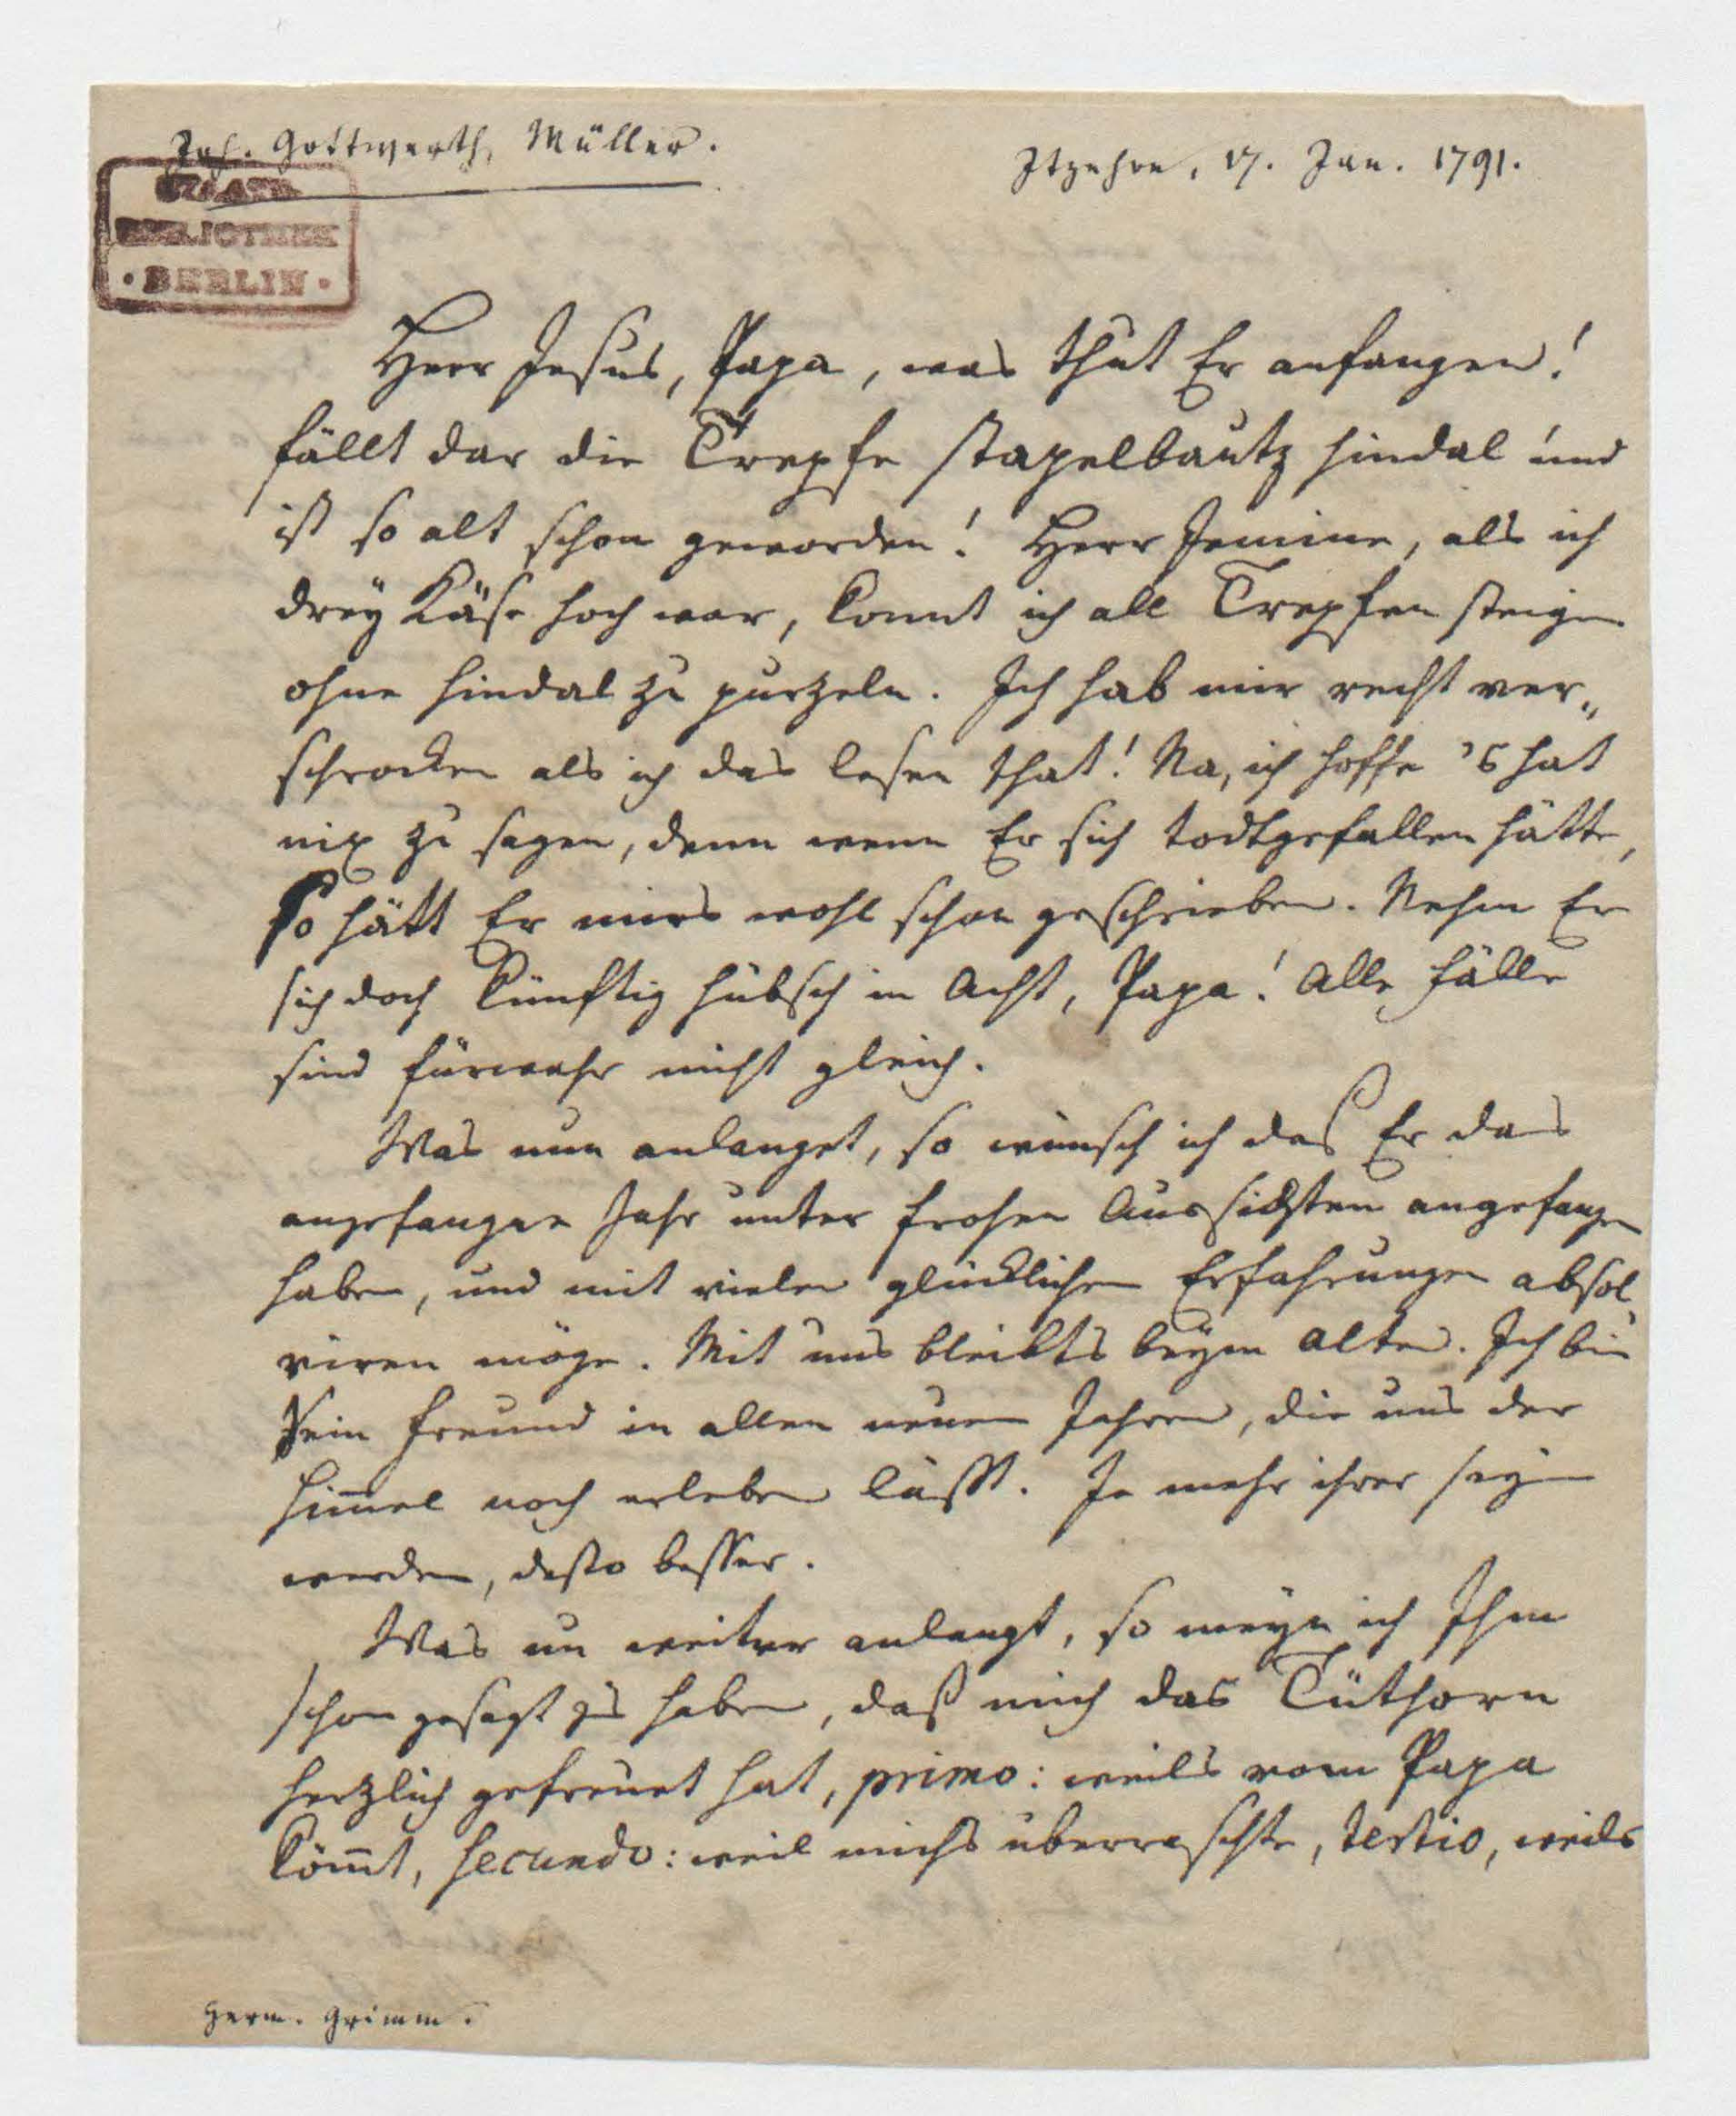 Joh. Gottwerth, Müller.
Itzehoe, 17. Jan. 1791.
STAATS
BIBLIOTHEK
· BERLIN ·
Herr Jesus, Papa, was thut Er anfangen!
fällt dar die Trepfe stapelbautz hindal und
ist so alt schon geworden! Herr Jemine, als ich
drey Käse hoch war, konnt ich all Trepfen steigen
ohne hindal zu purzeln. Ich hab mir recht ver„
schrocken als ich das lesen that! Na, ich hoffe 's hat
nix zu sagen, denn wenn Er sich todtgefallen hätte,
so hätt Er mirs wohl schon geschrieben. Nehm Er
sich doch künftig hübsch in Acht, Papa! Alle Fälle
sind fürwahr nicht gleich.
Was nun anlanget, so wünsch ich daß Er das
angefangne Jahr unter frohen Aussichten angefangen
haben, und mit vielen glücklichen Erfahrungen absol„
viren möge. Mit uns bleibts beym Alten. Ich bin
Sein Freund in allen neuen Jahren, die uns der
Himmel noch erleben läßt. Je mehr ihrer seyn
werden, desto besser.
Was nu weiter anlangt, so meyn ich Ihm
schon gesagt zu haben, daß mich das Tüthorn
herzlich gefreuet hat, primo: weils vom Papa
kömmt, secundo: weil michs überraschte, tertio, weils
Herm. Grimm.